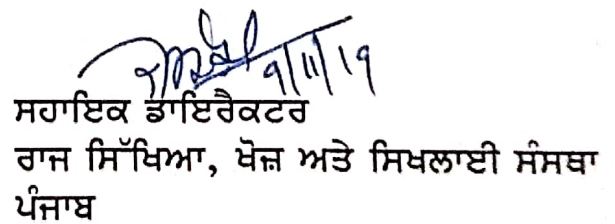 9/11/19
ਸਹਾਇਕ ਡਾਇਰੈਕਟਰ
ਰਾਜ ਸਿੱਖਿਆ, ਖੋਜ਼ ਅਤੇ ਸਿਖਲਾਈ ਸੰਸਥਾ
ਪੰਜਾਬ